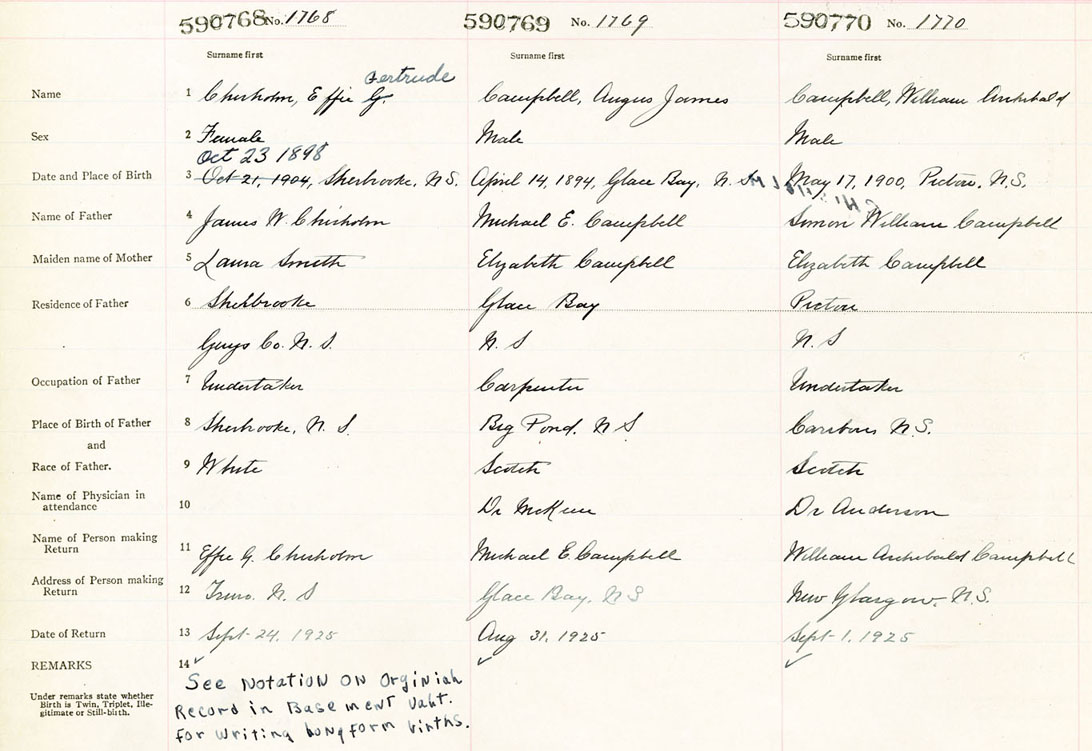 590768 No. 1768 590769 No. 1769 590770 No. 1770
Surname first Surname first Surname first
Gertrude
Name 1 Chisholm, Effie G. Campbell, Angus James Campbell, William Archibald
Sex 2 Female Male Male
Oct 23 1898
Date and Place of Birth 3 Oct 21, 1904, Sherbrooke, N.S. April 14, 1894, Glace Bay, N.S. May 17, 1900, Pictou, N.S.
Name of Father 4 James W. Chisholm Michael E. Campbell Simon William Campbell
Maiden name of Mother 5 Laura Smith Elizabeth Campbell Elizabeth Campbell
Residence of Father 6 Sherbrooke Glace Bay Pictou
Guys Co. N.S. N.S N.S
Occupation of Father 7 Undertaker Carpenter Undertaker
Place of Birth of Father 8 Sherbrooke, N.S. Big Pond. N S Caribou N.S.
and
Race of Father. 9 White Scotch Scotch
Name of Physician in
attendance 10 Dr Dr Anderson
Name of Person making
Return 11 Effie G. Chisholm Michael E. Campbell William Archibald Campbell
Address of Person making
Return 12 Truro. N. S Glace Bay. N S New Glasgow. N.S.
Date of Return 13 Sept 24, 1925 Aug 31, 1925 Sept 1, 1925
REMARKS 14
Under remarks state whether
Birth is Twin, Triplet, Ille-
gitimate or Still-birth.
See Notation on Orginial
Record in Basement Valt.
for writing long form births.